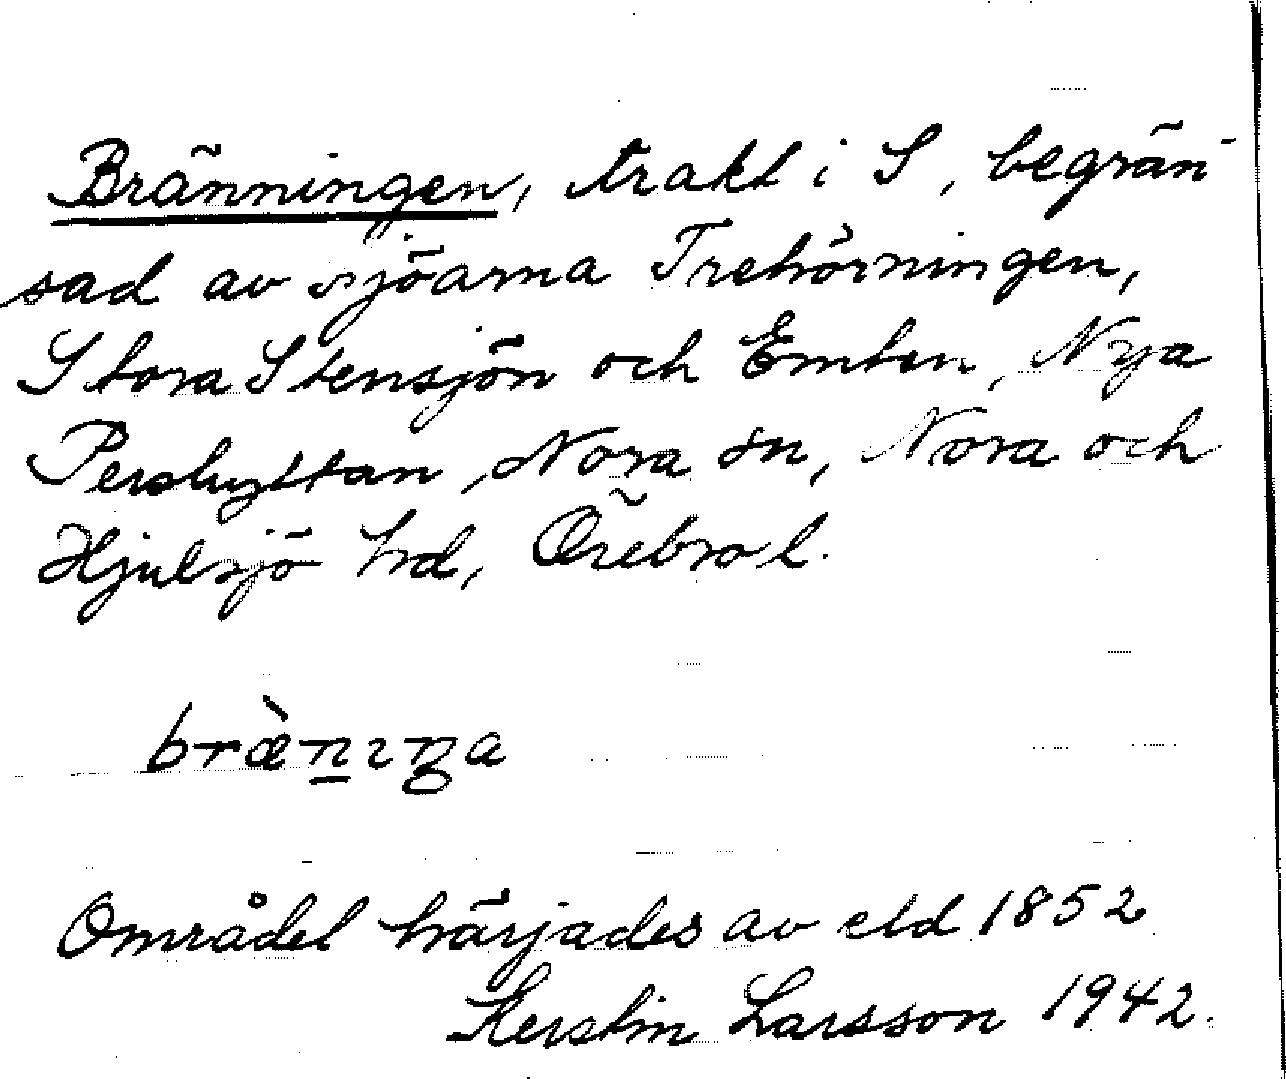 Bränningen, trakt i S, begrän-
sad av sjöarna Trehörningen,
Stora Stensjön och Emten, Nya
Pershyttan, Nora sn, Nora och
Hjulsjö hd, Örebro l.
brænıŋa
Området härjades av eld 1852
Kerstin Larsson 1942.